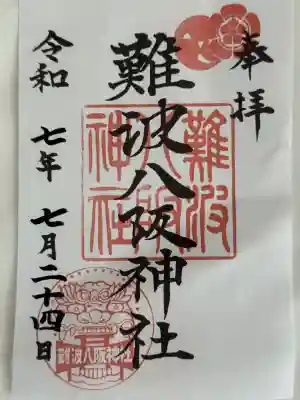 奉拝
難波八阪神社
難波八阪神社
令和 七年 七月二十四日
難波八阪神社